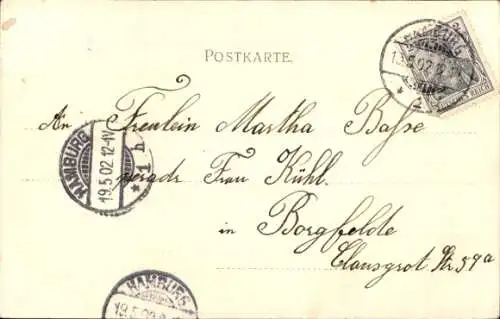 POSTKARTE.
HAMBURG
19.5.02
An Freulein Martha Basse
HAMBURG
19.5.02 12-1V
* 1 h.
Frau Kühl.
in Borgfelde
Str 59a
HAMBURG
19.5.02